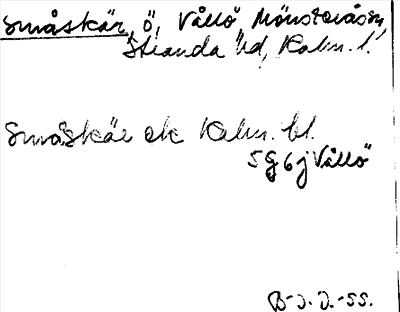 Småskär, ö, Vållö Mönsterås sn,
Stranda hd, Kalm. l.
Småskär ek Kalm. bl.
5G6j Vållö
B-J.J.-55.